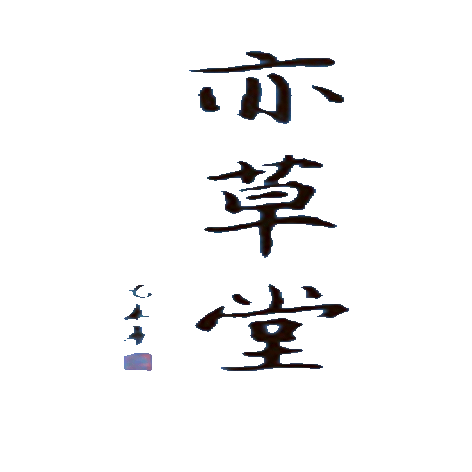 亦草堂